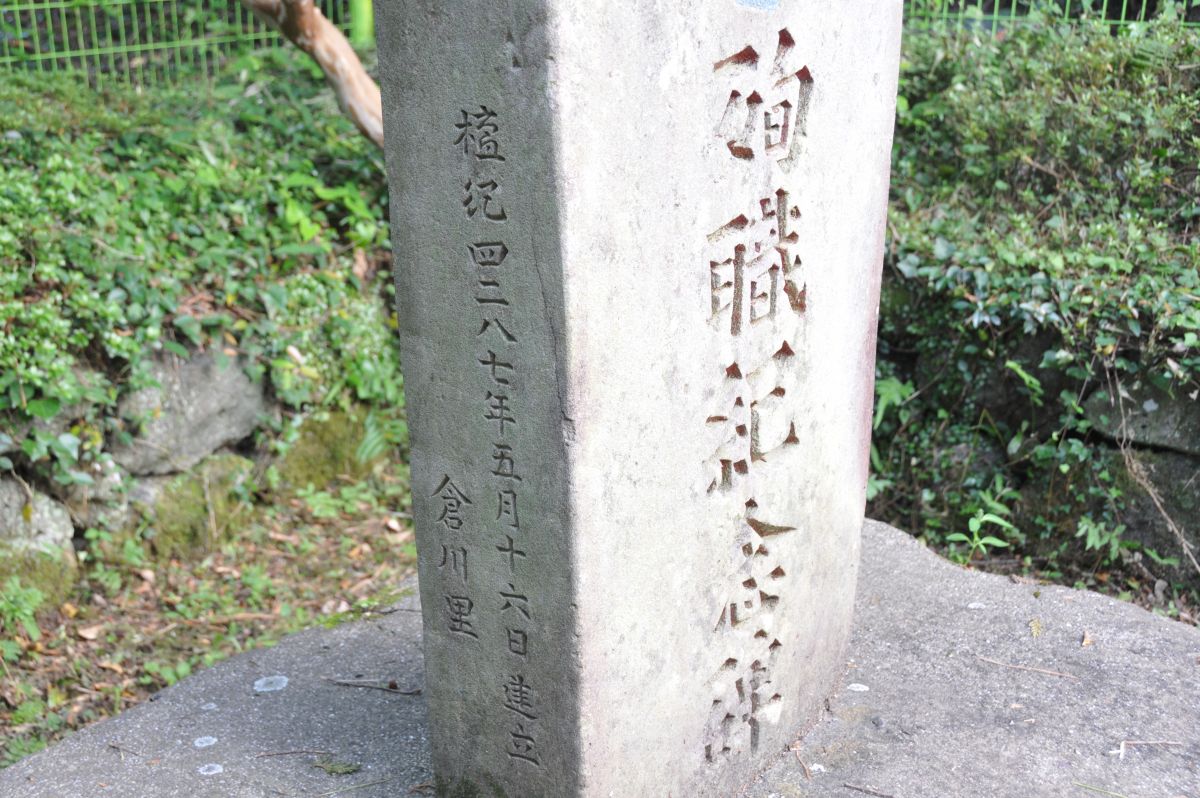 殉職紀念碑
檀紀四二八七年五月十六日建立
倉川里